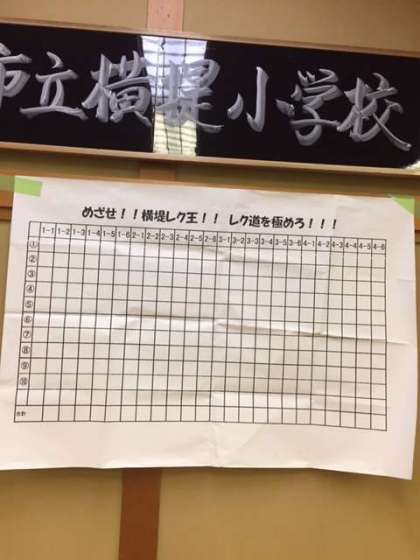 市立横堤小学校
めざせ！！横堤レク王！！ レク道を極めろ！！！
1-1 1-2 1-3 1-4 1-5 1-6 2-1 2-2 2-3 2-4 2-5 2-6 3-1 3-2 3-3 3-4 3-5 3-6 4-1 4-2 4-3 4-4 4-5 4-6
①
②
③
④
⑤
⑥
⑦
⑧
⑨
⑩
合計